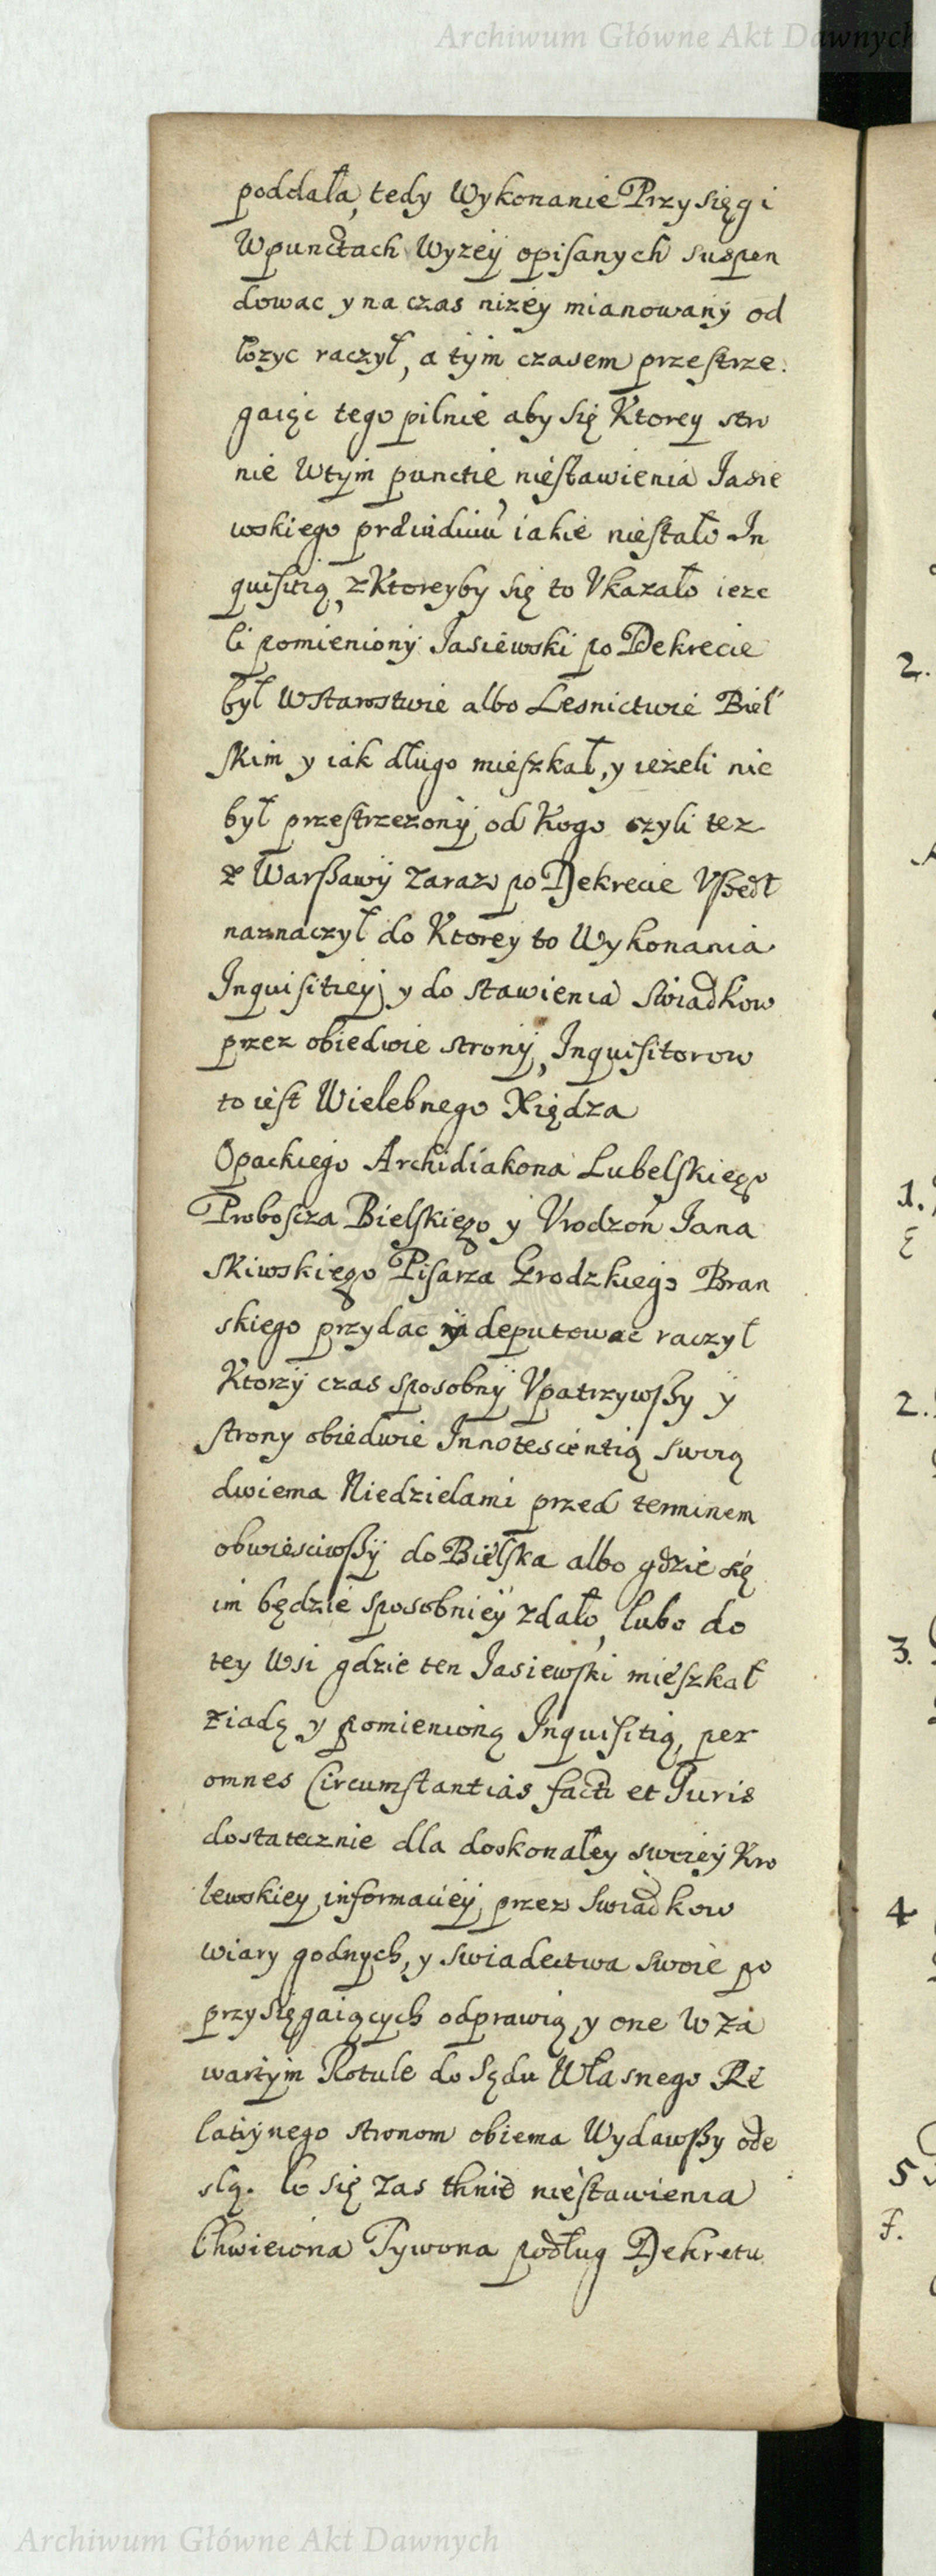 Archiwum Główne Akt Dawnych
poddała, tedy Wykonanie Przysięgi
W punctach Wyzeÿ opisanych suspen
dowac y na czas nizeÿ mianowanÿ od
łozyc raczył, a tÿm czasem przestrze
gaiąc tego pilnie aby się Ktoreÿ stro
nie W tÿm punctie niestawienia Jasie
wskiego iakie niestało In
quisitią, z Ktoreyby się to Vkazało ieze
li pomienionÿ Jasiewski po Dekrecie
był W Starostwie albo Lesnictwie Biel
skim y iak długo mieszkał, y ieżeli nie
był przestrzezonÿ od Kogo czyli tez
z Warszawÿ zaraz po Dekrecie Vszedł
naznaczył do Ktoreÿ to Wykonania
Inquisitieÿ y do stawienia swiadkow
przez obiedwie stronÿ, Inquisitorow
to iest Wielebnego Xiędza
Opackiego Archidiakona Lubelskiego
Proboscza Bielskiego y Vrodzon Jana
Skiwskiego Pisarza Grodzkiego Bran
skiego przydac y deputowac raczył
Ktorzÿ czas sposobnÿ Vpatrzywszy ÿ
strony obiedwie Innotescentią swoią
dwiema Niedzielami przed terminem
obwiesciwszÿ do Bielska albo gdzie się
im będzie sposobnieÿ zdało, lubo do
tey Wsi gdzie ten Jasiewski mieszkał
ziadą y pomienioną Inquisitią, per
omnes Circumstantias facti et Juris
dostatecznie dla doskonałey swoieÿ Kro
lewskiey informacieÿ przez Swiadkow
wiary godnych, y swiadectwa swoie po
przysięgaiących odprawią, y one W za
wartÿm Rotule do Sądu Własnego Re
latiÿnego stronom obiema Wydawszy ode
slą. Co się zas tknie niestawienia
Chwieiona Tywona podług Dekretu
2.
1.
2.
3.
4
5
Archiwum Główne Akt Dawnych